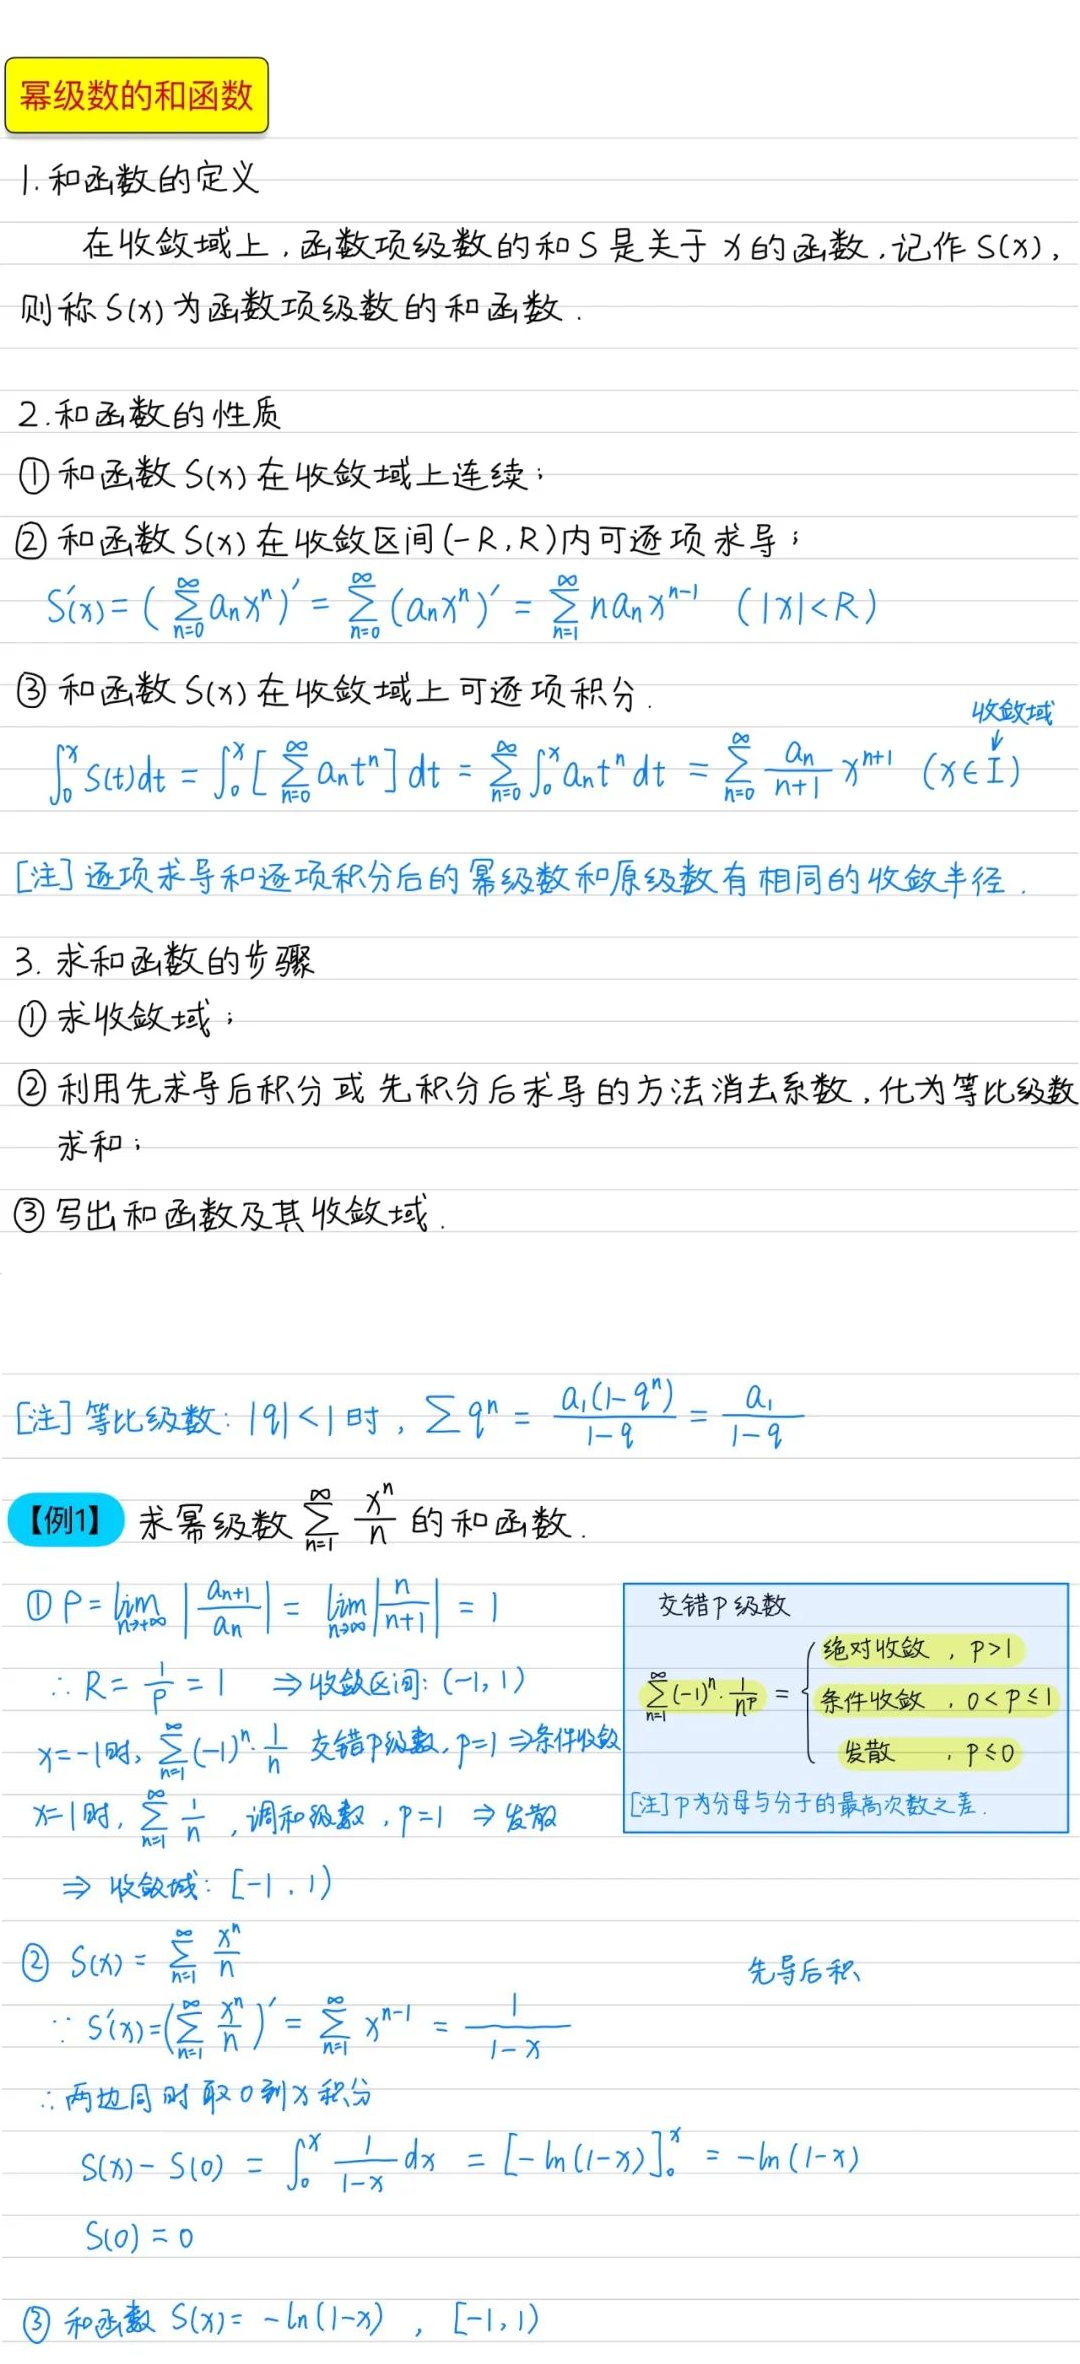 幂级数的和函数
1. 和函数的定义
在收敛域上,函数项级数的和S是关于x的函数,记作S(x),
则称S(x)为函数项级数的和函数.
2.和函数的性质
① 和函数S(x)在收敛域上连续;
② 和函数S(x)在收敛区间(-R,R)内可逐项求导;
S'(x)=(∑_{n=0}^{∞} aₙxⁿ)'=∑_{n=0}^{∞}(aₙxⁿ)'=∑_{n=1}^{∞} naₙxⁿ⁻¹ (|x|<R)
③ 和函数S(x)在收敛域上可逐项积分.
收敛域
↓
∫₀ˣS(t)dt=∫₀ˣ[∑_{n=0}^{∞} aₙtⁿ]dt=∑_{n=0}^{∞}∫₀ˣaₙtⁿdt=∑_{n=0}^{∞} aₙ/(n+1) xⁿ⁺¹ (x∈I)
[注] 逐项求导和逐项积分后的幂级数和原级数有相同的收敛半径.
3. 求和函数的步骤
① 求收敛域;
② 利用先求导后积分或先积分后求导的方法消去系数,化为等比级数
求和;
③ 写出和函数及其收敛域.
[注] 等比级数: |q|<1时, ∑qⁿ = a₁(1-qⁿ)/(1-q) = a₁/(1-q)
【例1】 求幂级数 ∑_{n=1}^{∞} xⁿ/n 的和函数.
① ρ=lim_{n→+∞}|aₙ₊₁/aₙ|=lim_{n→∞}|n/(n+1)|=1
∴ R=1/ρ=1 ⇒收敛区间: (-1,1)
x=-1时, ∑_{n=1}^{∞}(-1)ⁿ·1/n 交错P级数, p=1 ⇒条件收敛
x=1时, ∑_{n=1}^{∞} 1/n ,调和级数, p=1 ⇒ 发散
⇒ 收敛域: [-1,1)
交错P级数
∑_{n=1}^{∞}(-1)ⁿ·1/nᵖ = {
绝对收敛 , p>1
条件收敛 , 0<p≤1
发散 , p≤0
[注] p为分母与分子的最高次数之差.
② S(x)=∑_{n=1}^{∞} xⁿ/n
先导后积
∵ S'(x)=(∑_{n=1}^{∞} xⁿ/n)'=∑_{n=1}^{∞} xⁿ⁻¹=1/(1-x)
∴ 两边同时取0到x积分
S(x)-S(0) = ∫₀ˣ 1/(1-x) dx = [-ln(1-x)]₀ˣ = -ln(1-x)
S(0)=0
③ 和函数 S(x)= -ln(1-x) , [-1,1)